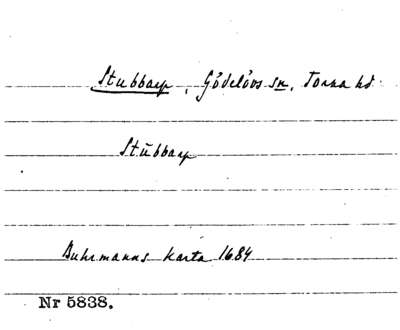 Stubbarp, Gödelövs sn, Torna hd
Stŭbbarp
Buhrmanns karta 1684
Nr 5838.